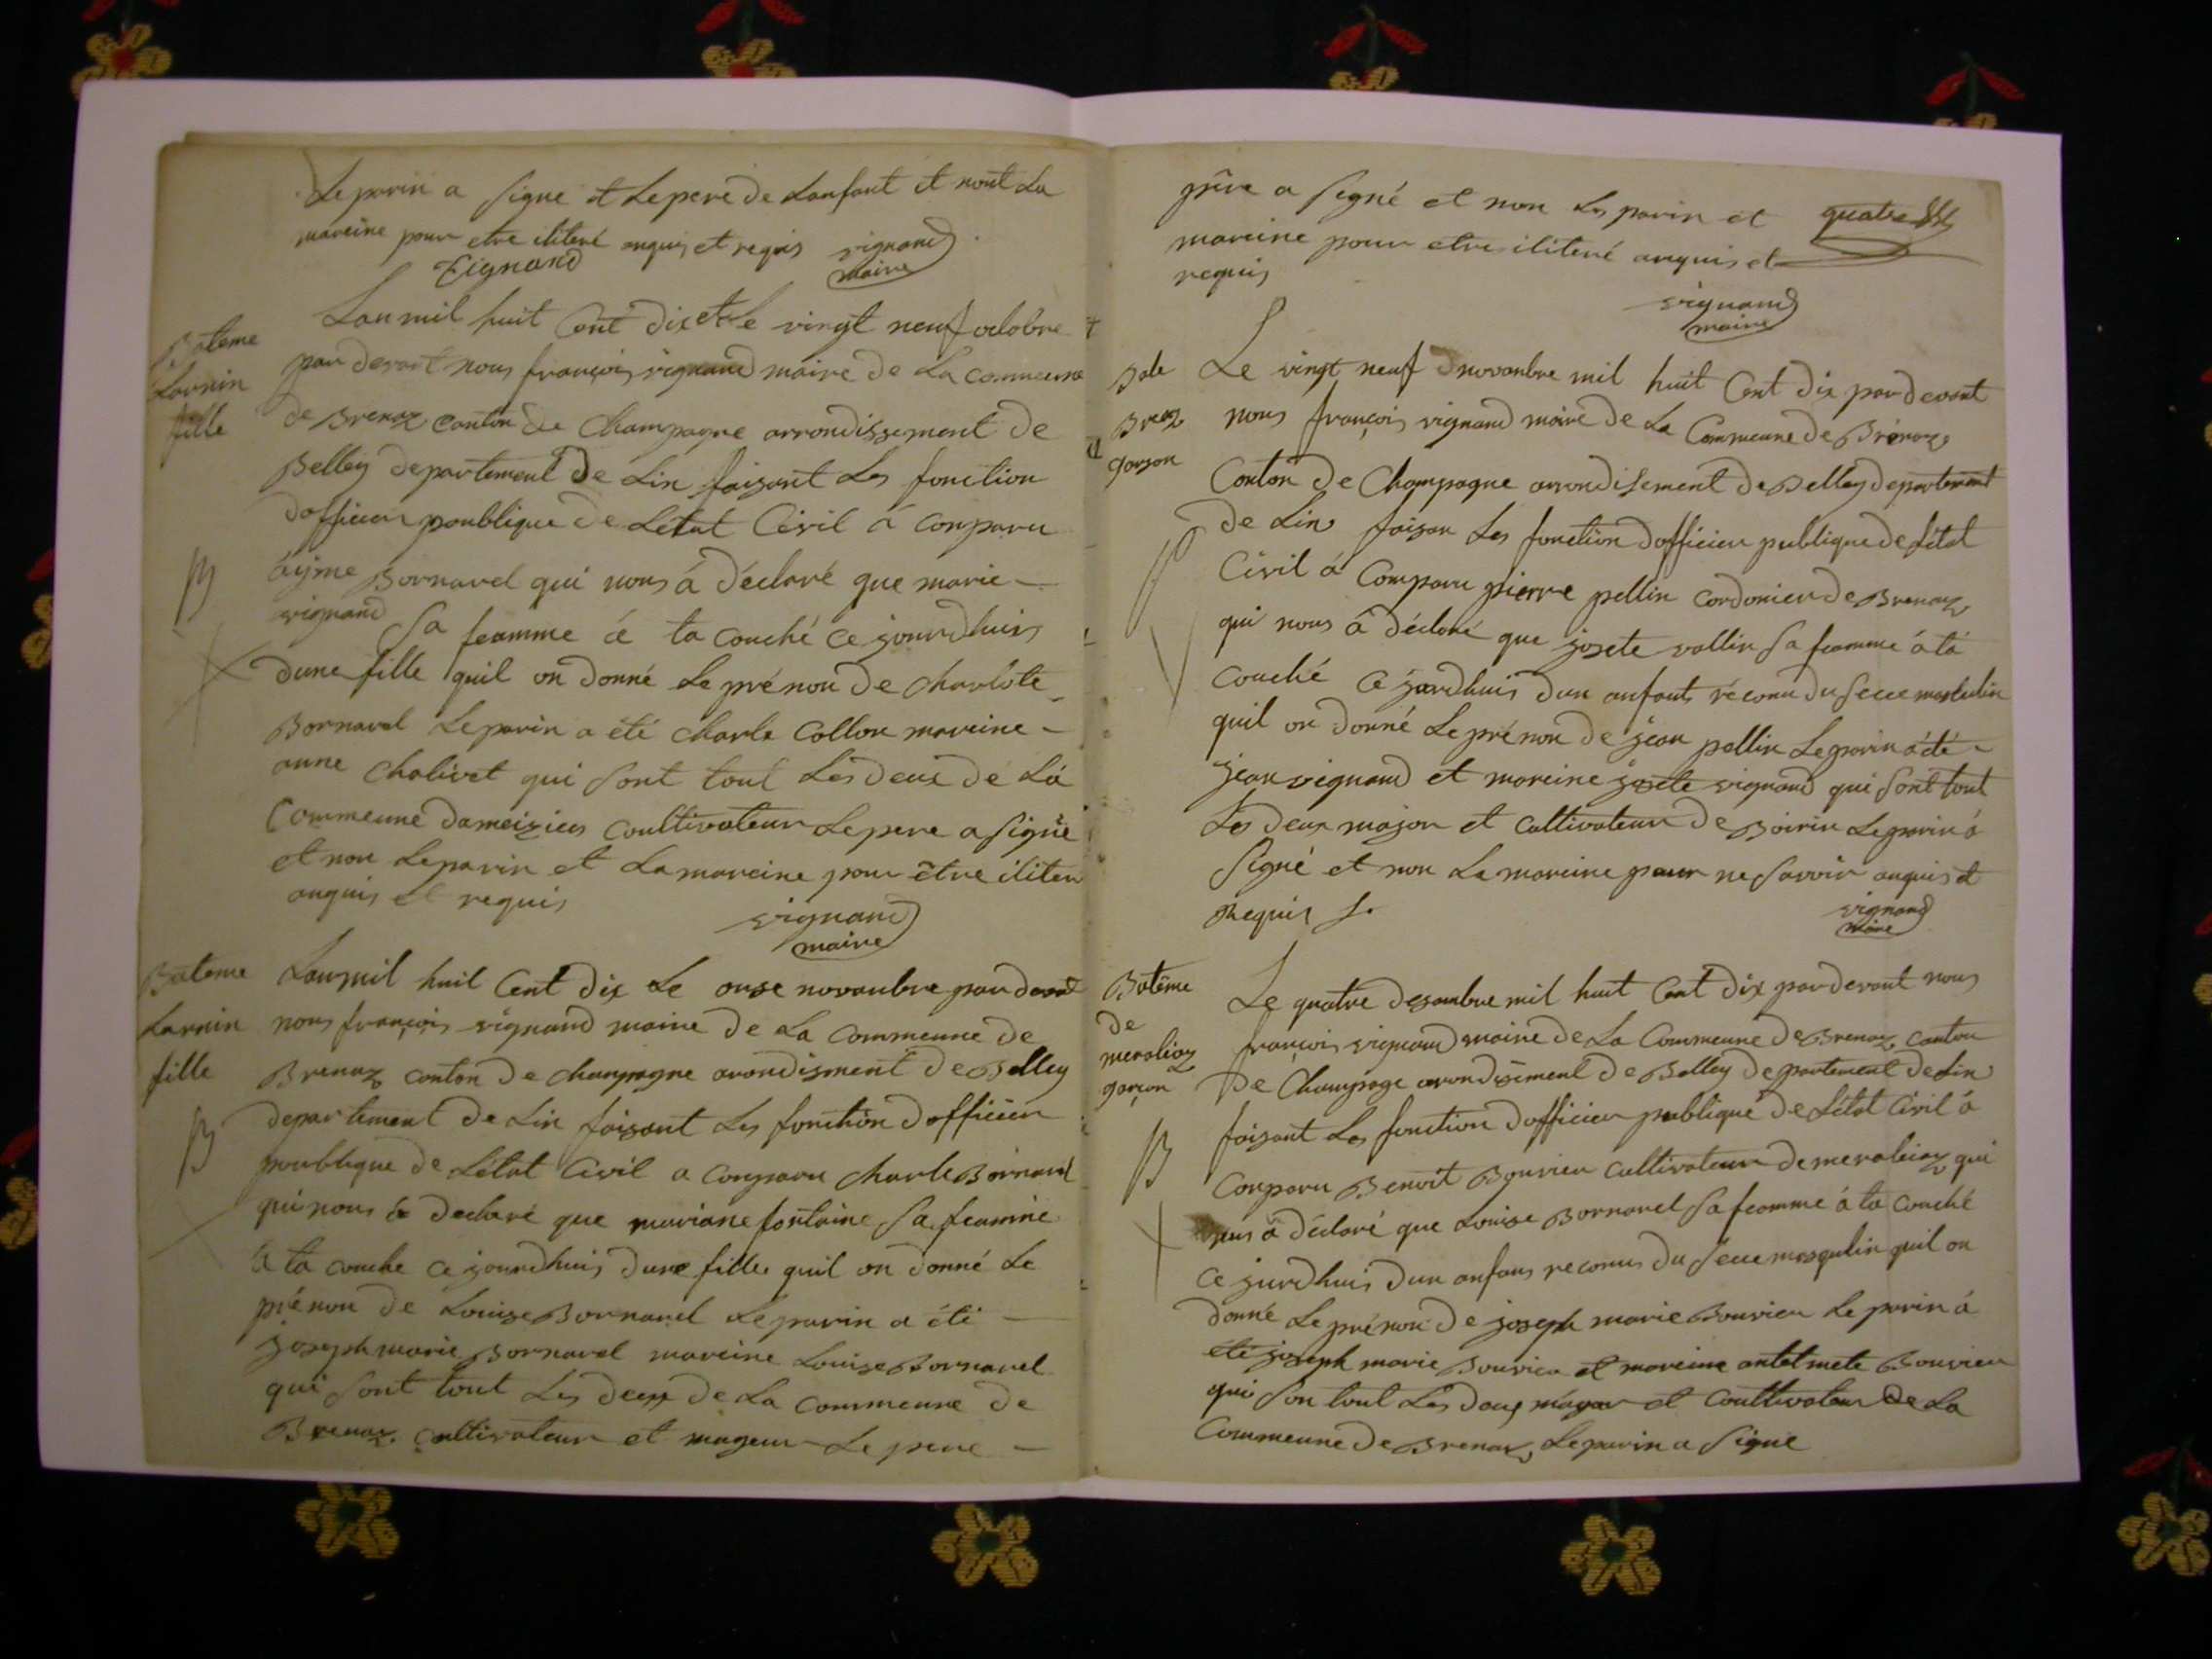 Le parin a signe et Le pere de Lanfant et nont La
mareine pour etre iliteré anquis et regis vignand
Vignand maire
Lan mil huit Cent dix et Le vingt neuf octobre
Bateme
Larnin
fille
par devant nous françois vignand maire de La commeune
de Brenaz canton de Champagne arrondissement de
Belley departement De Lin faisant Les fonction
dofficier poublique de Létat Civil á comparu
ayme Bornarel qui nous á déclaré que marie
vignand Sa feamme á ta couché ce jourdhuis
dune fille quil on donné Le prénon de charlote
Bornarel Le parin a été charle Collon mareine
anne Chalivet qui Sont tout Les deux dé Lá
Commeune dameizieu coultivateur Le pere a Signe
et non Le parin et La mareine pour être iliter
anquis et requis
vignand
maire
Bateme
Larnin
fille
Lan mil huit Cent dix Le onse novanbre par devant
nous françois vignand maire de La commeune de
Brenaz canton de champagne arondisment de Belley
departement de Lin faisant Les fonction dofficier
poublique de Létat Civil a conparu charle Bornarel
qui nous á declaré que mariane fontaine Sa feamme
á ta couche ce jourdhuis dune fille quil on donné Le
prénon de Louise Bornarel Le parin a été
joseph marie Bornarel mareine Louise Bornarel
qui Sont tout Les deux de La commeune de
Brenaz cultivateur et mageur Le pere
pére a signé et non Les parin et quatre
mareine pour etre iliteré anquis et
requis
vignand
maire
Bate
Breaz
garson
Le vingt neuf novanbre mil huit Cent dix par devant
nous françois vignand maire de La Commeune de Brénaz
Canton de Champagne arrondisement de Belley departement
de Lin faisan Les fonction dofficier publique de Létat
Civil á Comparu pierre pellin cordonier de Brenaz
qui nous á déclaré que josete vallin Sa feamme á tá
couché Ce jourdhuis dun anfant réconu du Secce masculin
quil on donné Le prénon de jean pellin Le parin á été
jean vignand et mareine josete vignand qui Sont tout
Les deux major et cultivateur de Boirin Le parin á
Signé et non La mareine pour ne Savoir anquis et
Requis
vignand
maire
Batême
de
meraliaz
garçon
Le quatre desanbre mil huit Cent dix par devant nous
françois vignand maire de La Commeune de Brenaz canton
De Champage arondisement de Belley departement de Lin
faisant Les fonction dofficier publique de Létat Civil á
conparu Benoit Bouvier cultivateur de meraleiaz qui
nous á déclaré que Louise Bornarel Sa feamme á ta couché
ce jurdhuis dun anfans reconus du Secce masqulin quil on
donné Le prénon de joseph marie Bouvier Le parin á
été joseph marie Bouvier et mareine antelmete Bouvier
qui Son tout Les deux mayor et coultivateur de La
Commeune de Brenaz Le parin a Signe